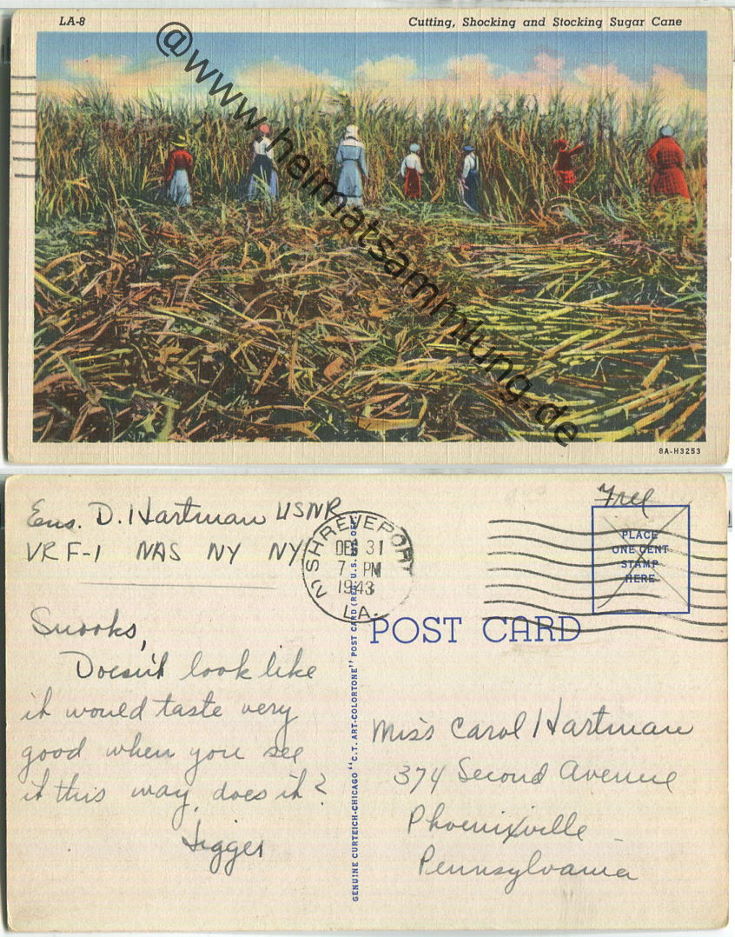 LA-8
Cutting, Shocking and Stocking Sugar Cane
@www.heimatsammlung.de
8A-H3253
Ens. D. Hartman USNR
VRF-1 NAS NY NY
Snooks,
Doesn't look like
it would taste very
good when you see
it this way, does it?
Jigger
SHREVEPORT
2
DEC 31
7 PM
1943
LA.
GENUINE CURTEICH-CHICAGO "C.T. ART-COLORTONE" POST CARD (REG. U.S. PAT. OFF.)
Free
PLACE
ONE CENT
STAMP
HERE
POST CARD
Miss Carol Hartman
374 Second Avenue
Phoenixville
Pennsylvania